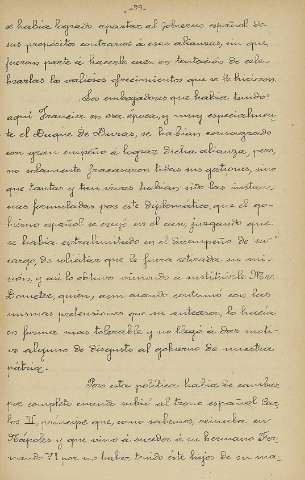 se había logrado apartar al gobierno español de
sus propósitos contrarios á esas alianzas, sin que
fueran parte á hacerle caer en tentación de cele-
brarlas los valiosos ofrecimientos que se le hicieron.
Los embajadores que había tenido
aquí Francia en esa época, y muy especialmen-
te el Duque de Duras, se habían consagrado
con gran empeño á lograr dicha alianza, pero,
no solamente fracasaron todas sus gestiones, sino
que tantas y tan vivas habían sido las instan-
cias formuladas por este diplomático, que el go-
bierno español se creyó en el caso, juzgando que
se había extralimitado en el desempeño de su
cargo, de solicitar que le fuera retirada su mi-
sión, y así lo obtuvo viniendo a substituirle Mr.
quien, aun cuando continuó con las
mismas pretensiones que su antecesor, lo hacía
en forma más tolerable y no llegó á dar moti-
vo alguno de disgusto al gobierno de nuestra
patria.
Pero esta política había de cambiar
por completo cuando subió al trono español Car-
los III, príncipe que, como sabemos, reinaba en
Nápoles y que vino á suceder á su hermano Fer-
nando VI por no haber tenido éste hijos de su ma-